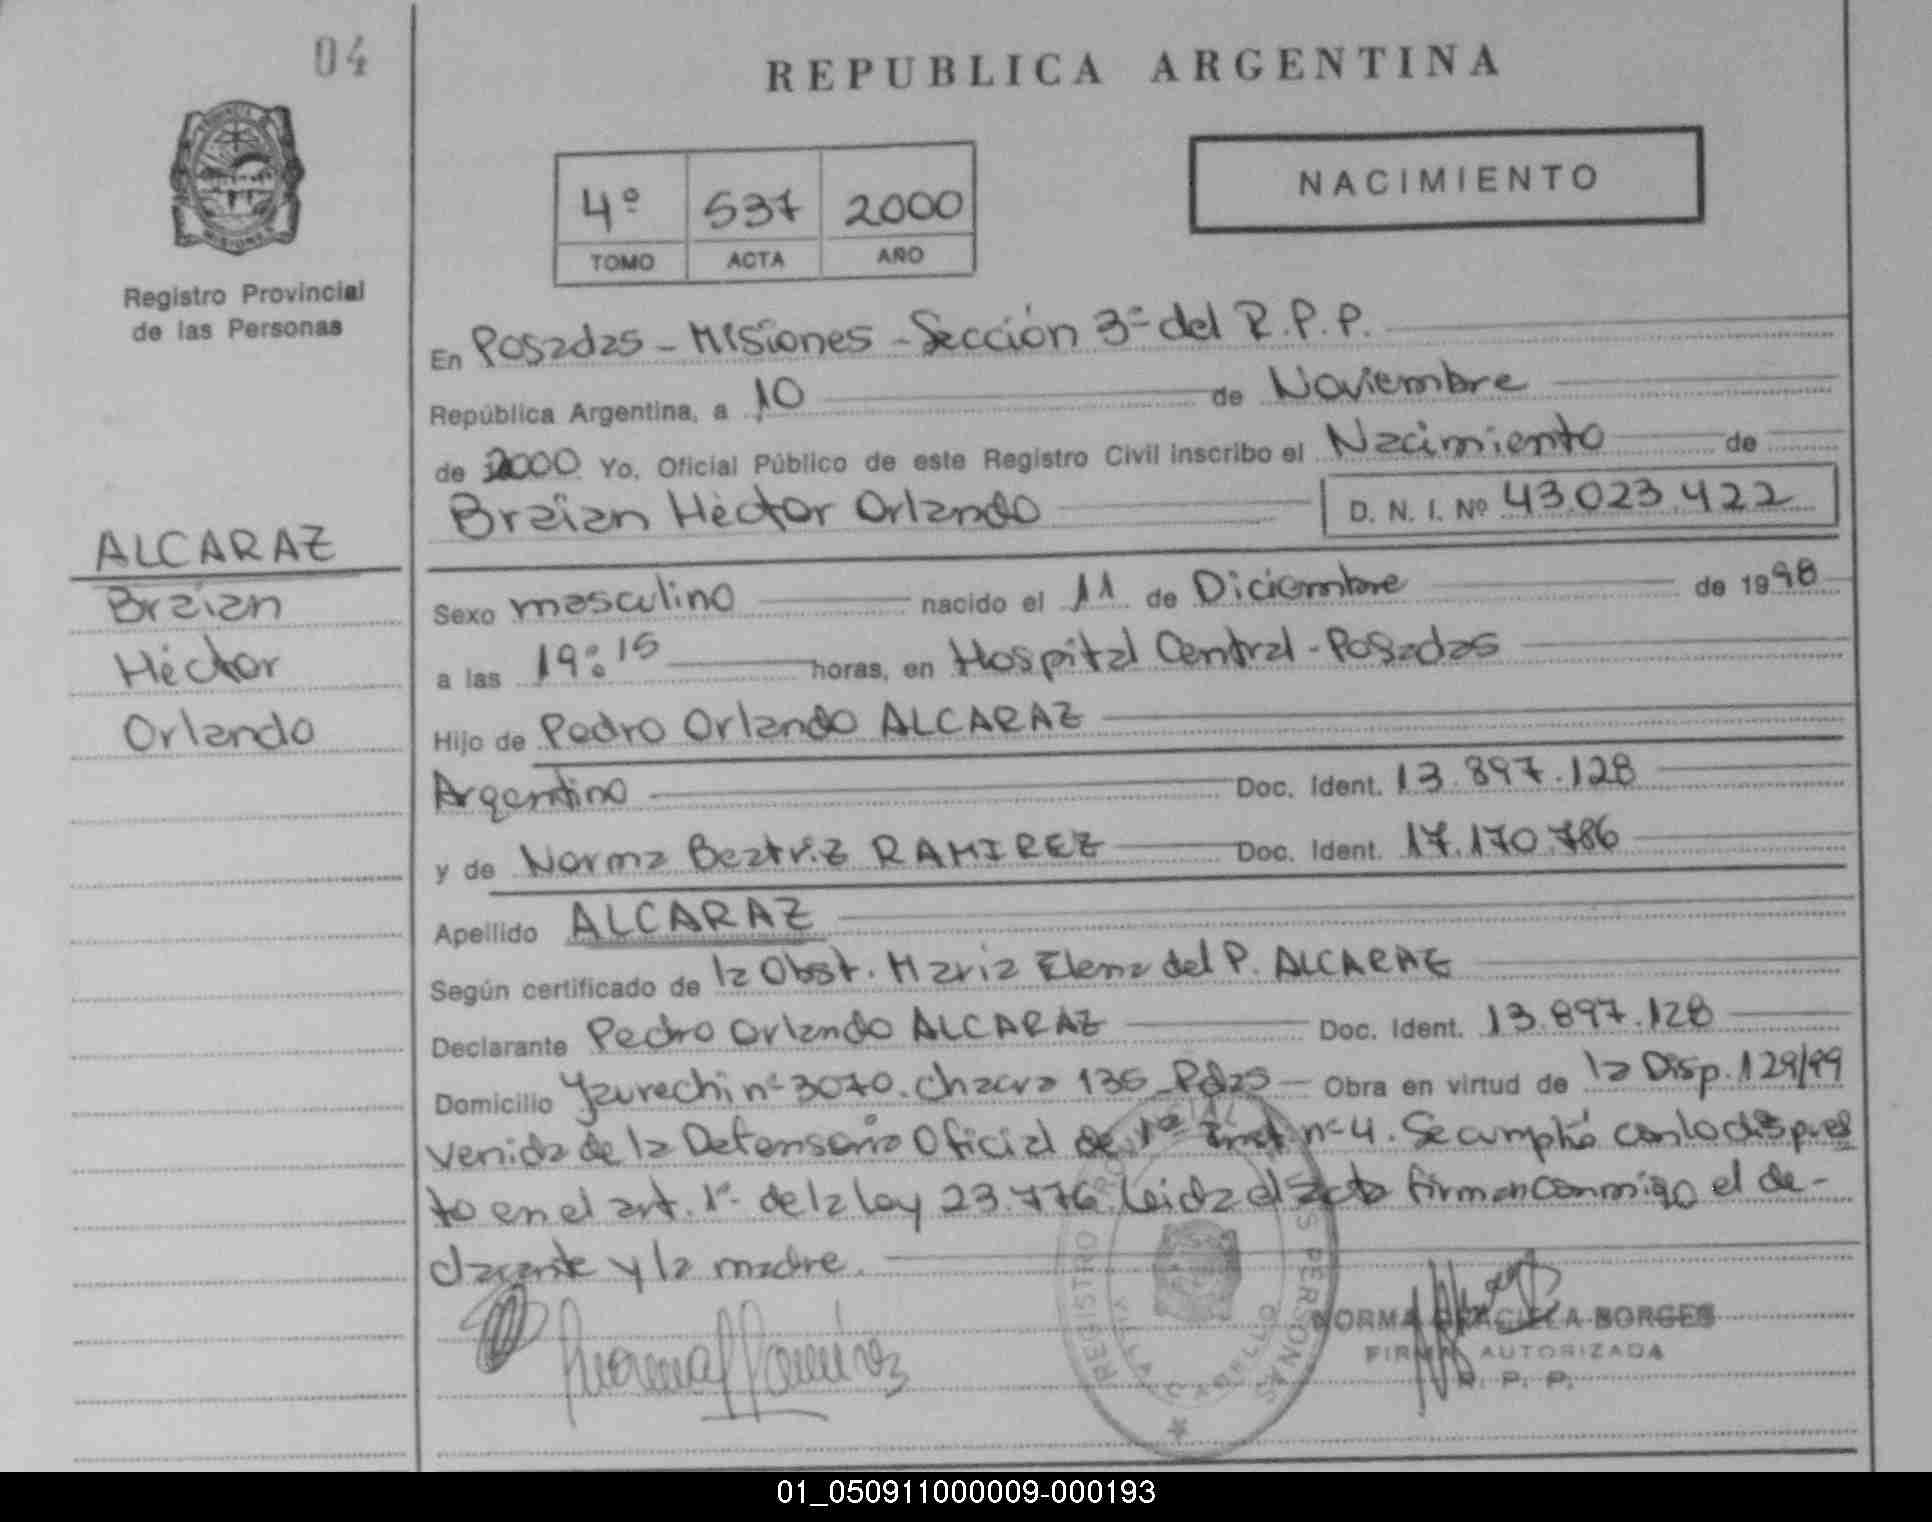 04
REPUBLICA ARGENTINA
NACIMIENTO
4º 537 2000
TOMO ACTA AÑO
Registro Provincial
de las Personas
En Posadas - Misiones - Sección 3ª del R.P.P.
República Argentina, a 10 de Noviembre
de 2000 Yo, Oficial Público de este Registro Civil inscribo el Nacimiento de
Braian Héctor Orlando D. N. I. Nº 43.023.422
ALCARAZ
Braian
Héctor
Orlando
Sexo masculino nacido el 11 de Diciembre de 1998
a las 19:15 horas, en Hospital Central - Posadas
Hijo de Pedro Orlando ALCARAZ
Argentino Doc. Ident. 13.897.128
y de Norma Beatriz RAMIREZ Doc. Ident. 17.170.786
Apellido ALCARAZ
Según certificado de la Obst. Maria Elena del P. ALCARAZ
Declarante Pedro Orlando ALCARAZ Doc. Ident. 13.897.128
Domicilio nº 3070. Chacra 136 - Pdas - Obra en virtud de la Disp. 129/99
venida de la Defensoria Oficial de 1ª Inst. nº 4. Se cumplió con lo dispues
to en el art. 1º de la ley 23.776. Leida el acta firman conmigo el de-
clarante y la madre.
REGISTRO PERSONAS
VILLA CABELLO
NORMA GRACIELA BORGES
FIRMA AUTORIZADA
R. P. P.
01_050911000009-000193